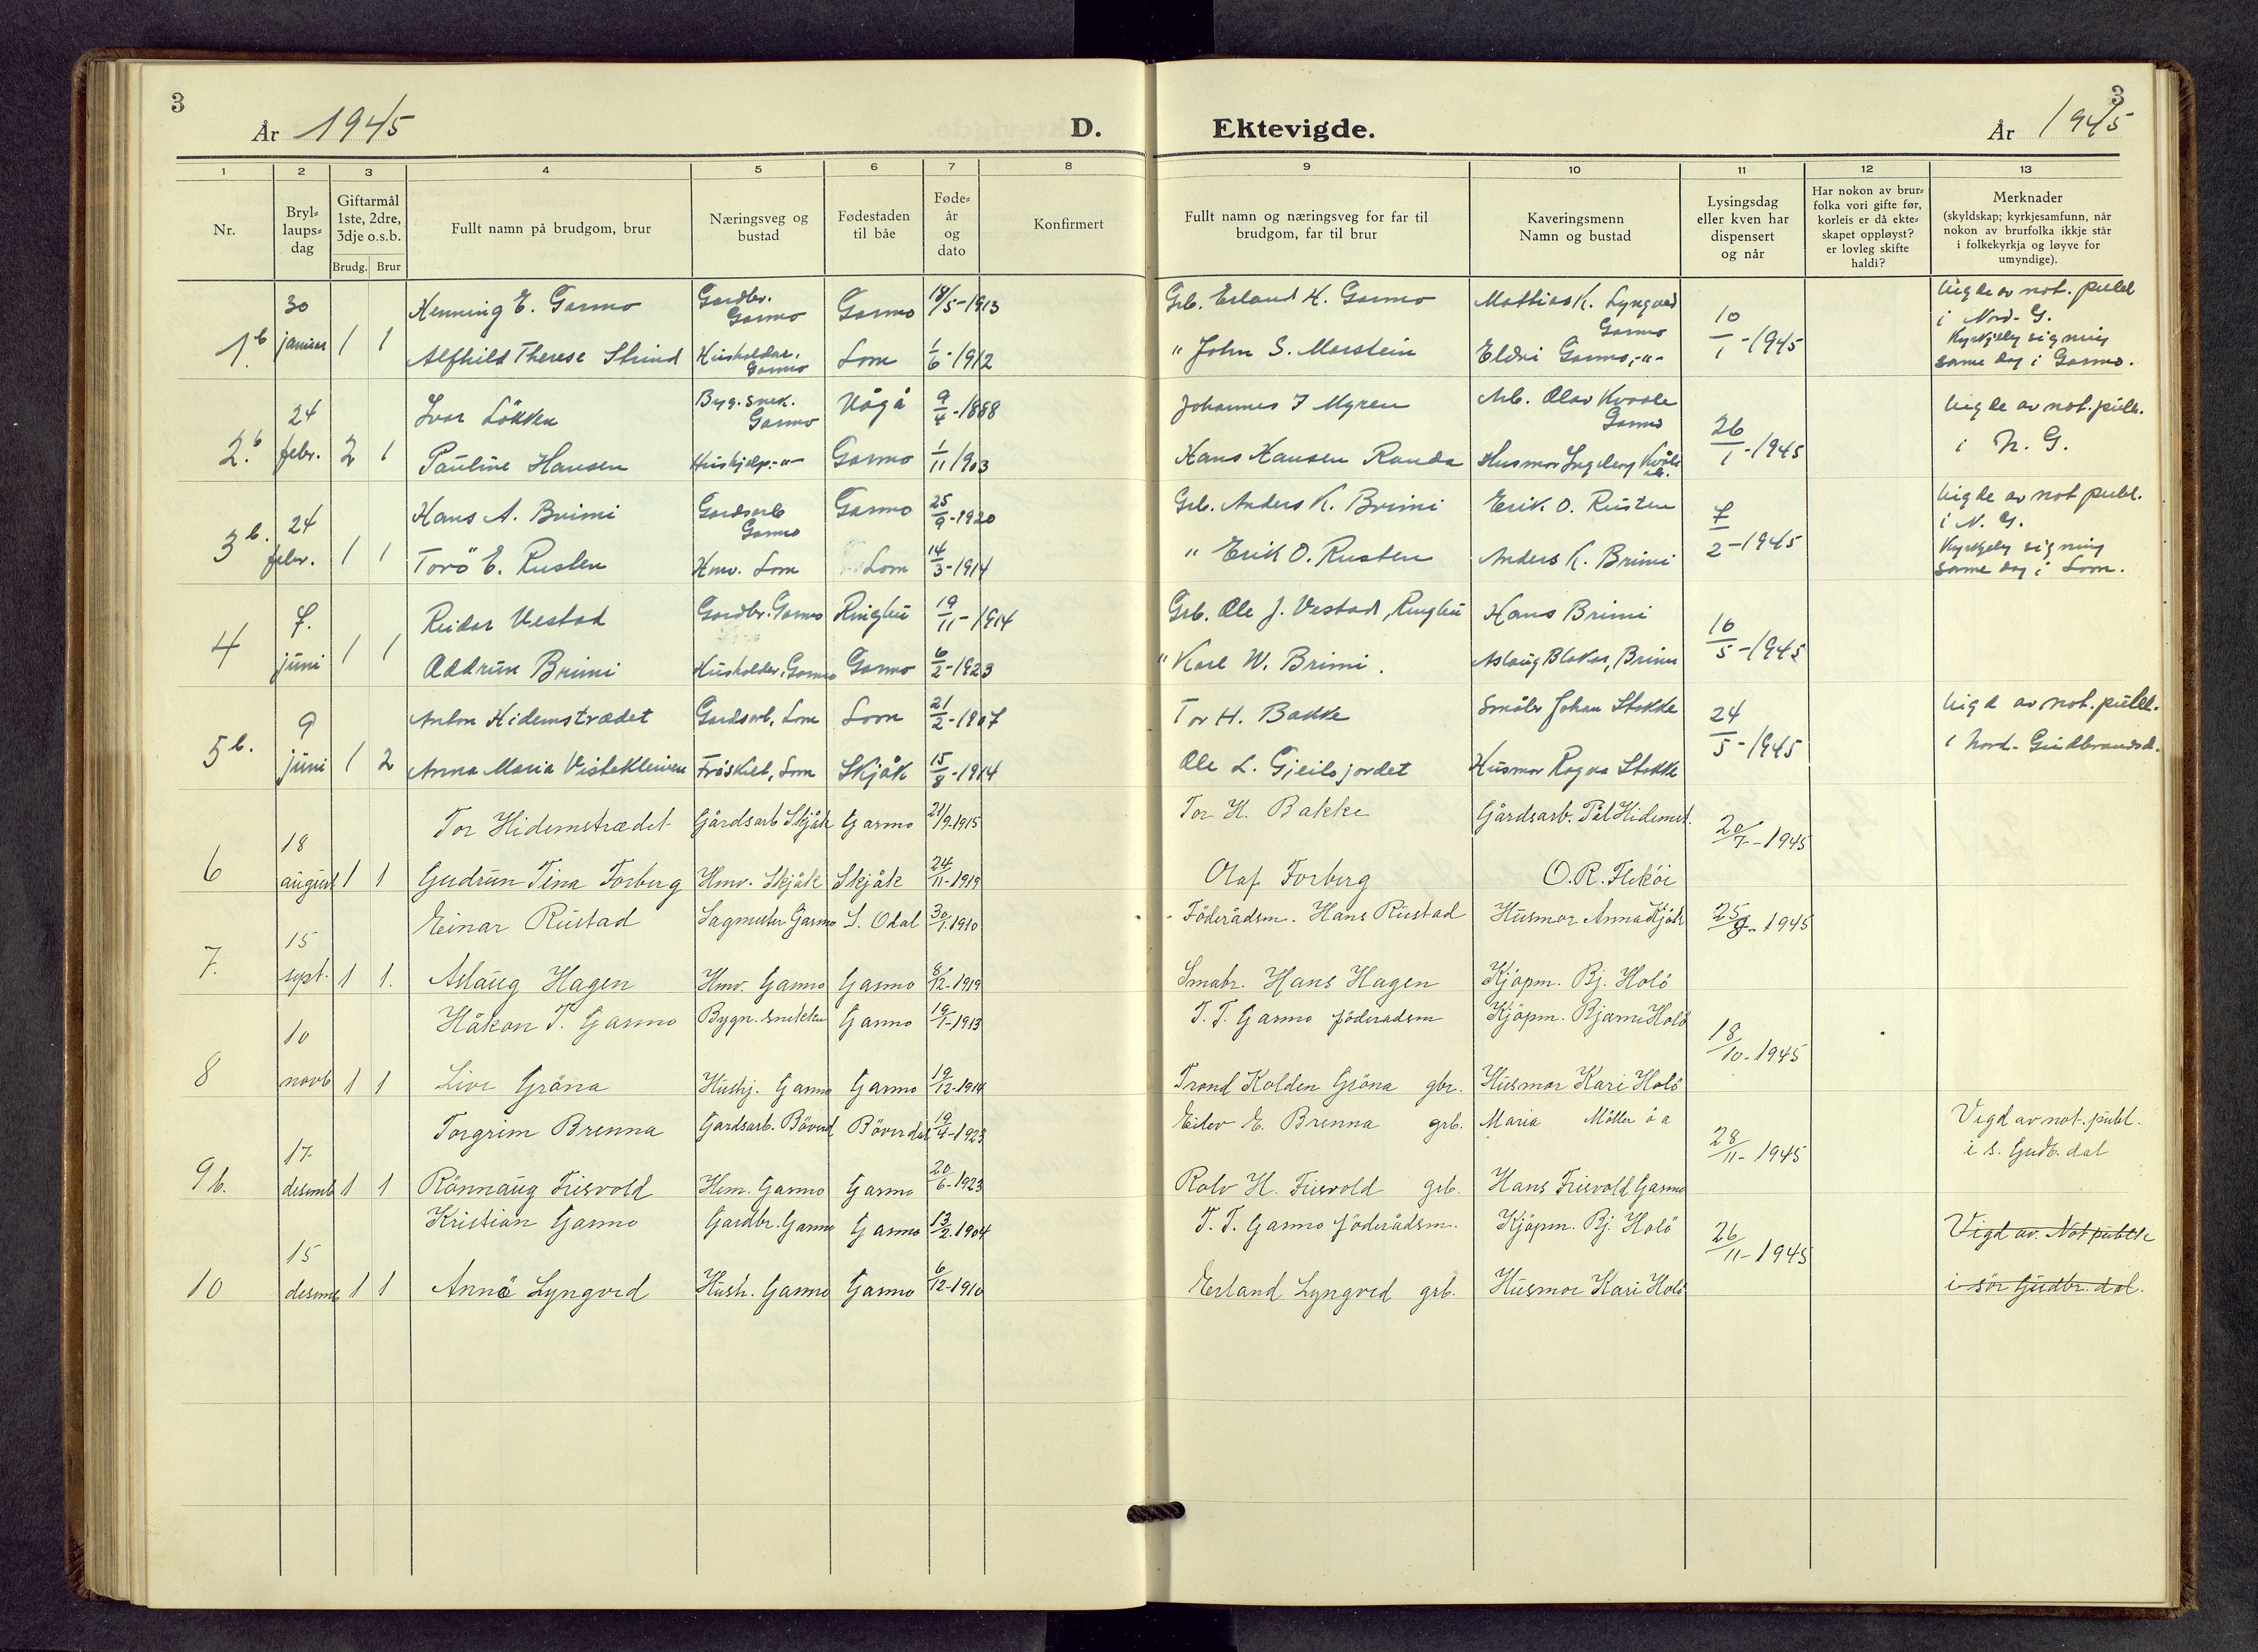 3
År 1945
D.
1 2 3 4 5 6 7 8
Nr.
Bryl-
laups-
dag
Giftarmål
1ste, 2dre,
3dje o.s.b.
Brudg. Brur
Fullt namn på brudgom, brur
Næringsveg og
bustad
Fødestaden
til båe
Føde-
år
og
dato
Konfirmert
1 b
30
januar
1 1
Henning E. Garmo
Gardbr.
Garmo
Garmo
18/5-1913
Alfhild Therese Strind
Hushaldar.
Garmo
Lom
1/6-1912
2. b
24
febr.
2 1
Ivar Løkken
Byg. snek.
Garmo
Vågå
9/4-1888
Pauline Hansen
Hushjelp. -"-
Garmo
1/11 1903
3 b.
24
febr.
1 1
Hans A. Brimi
Gardsarb
Garmo
Garmo
25/9-1920
Torö E. Rusten
Hmv. Lom
Lom
14/3-1914
4
7.
juni
1 1
Reidar Vestad
Gardbr. Garmo
Ringbu
19/11-1914
Oddrun Brimi
Husholder, Garmo
Garmo
6/2-1923
5 b.
9
juni
1 2
Anton Hidemstrædet
Gardsarb, Lom
Lom
21/2-1907
Anna Maria Vistekleiven
Fråskilt, Lom
Skjåk
15/8-1914
6
18
august
1 1
Tor Hidemstrædet
Gårdsarb Skjåk
Garmo
21/9-1915
Gudrun Tina Forberg
Hmv. Skjåk
Skjåk
24/11-1919
7.
15
sept.
1 1.
Einar Rustad
Sagmester Garmo
S. Odal
30/1-1910
Aslaug Hagen
Hmv. Garmo
Garmo
8/12-1919
8
10
novb
1 1
Håkon T. Garmo
Bygn. snekker
Garmo
19/1-1913
Live Gröna
Hushj. Garmo
Garmo
19/12-1914
9 b.
17
desemb
1 1
Torgrim Brenna
Gardsarb. Böverd
Böverdal
19/4-1923
Rönnaug Frisvold
Hem. Garmo
Garmo
20/6-1923
10
15
desemb
1 1
Kristian Garmo
Gardbr. Garmo
Garmo
13/2-1904
Anna Lyngved
Hush. Garmo
Garmo
6/12-1910
3
Ektevigde.
År 1945
9 10 11 12 13
Fullt namn og næringsveg for far til
brudgom, far til brur
Kaveringsmenn
Namn og bustad
Lysingsdag
eller kven har
dispensert
og når
Har nokon av brur-
folka vori gifte før,
korleis er då ekte-
skapet oppløyst?
er lovleg skifte
haldi?
Merknader
(skyldskap; kyrkjesamfunn, når
nokon av brurfolka ikkje står
i folkekyrkja og løyve for
umyndige).
Grb. Erland H. Garmo
Mathias K. Lyngved
Garmo
10/1-1945
Vigde av not. publ
i Nord- G.
Kyrkjeleg signing
same dag i Garmo.
" John S. Marstein
Eldri Garmo, -"-
Johannes J Myren
Arb. Olav Kvaale
Garmo
26/1-1945
Vigde av not. publ.
i N. G.
Hans Hansen Randa
Husmor Ingeborg
Grb. Anders K. Brimi
Erik O. Rusten
7/2-1945
Vigde av not publ.
i N. G.
Kyrkjeleg signing
same dag i Lom.
" Erik O. Rusten
Anders K. Brimi
Grb. Ole J. Vestad, Ringbu
Hans Brimi
16/5-1945
" Karl W. Brimi.
Aslaug Blakar, Brimi
Tor H. Bakke
Småbr Johan Stokke
24/5-1945
Vigd av not. publ.
i Nord- Gudbrandsd.
Ole L. Gjeilsjordet
Husmor Ragna Stokke
Tor H. Bakke
Gårdsarb. Pål Hidemst.
20/7-1945
Olaf Forberg
O. R. Flekøi
Föderådsm. Hans Rustad
Husmor Anna Kjök
25/8-1945
Smabr. Hans Hagen
Kjöpm. Bj. Holö
T. T. Garmo föderadsm
Kjöpm. Bjarne Holö
18/10-1945
Trond Kolden Gröna gbr.
Husmor Kari Holö
Eilev E. Brenna grb.
Maria
28/11-1945
Vigd av not. publ.
i S. Gudb. dal
Rolv H. Frisvold grb.
Hans Frisvold Garmo
T. T. Garmo föderådsm.
Kjöpm. Bj. Holö
26/11-1945
Vigd av. Not publ
i sör Gudbr. dal.
Erland Lyngved grb.
Husmor Kari Holö